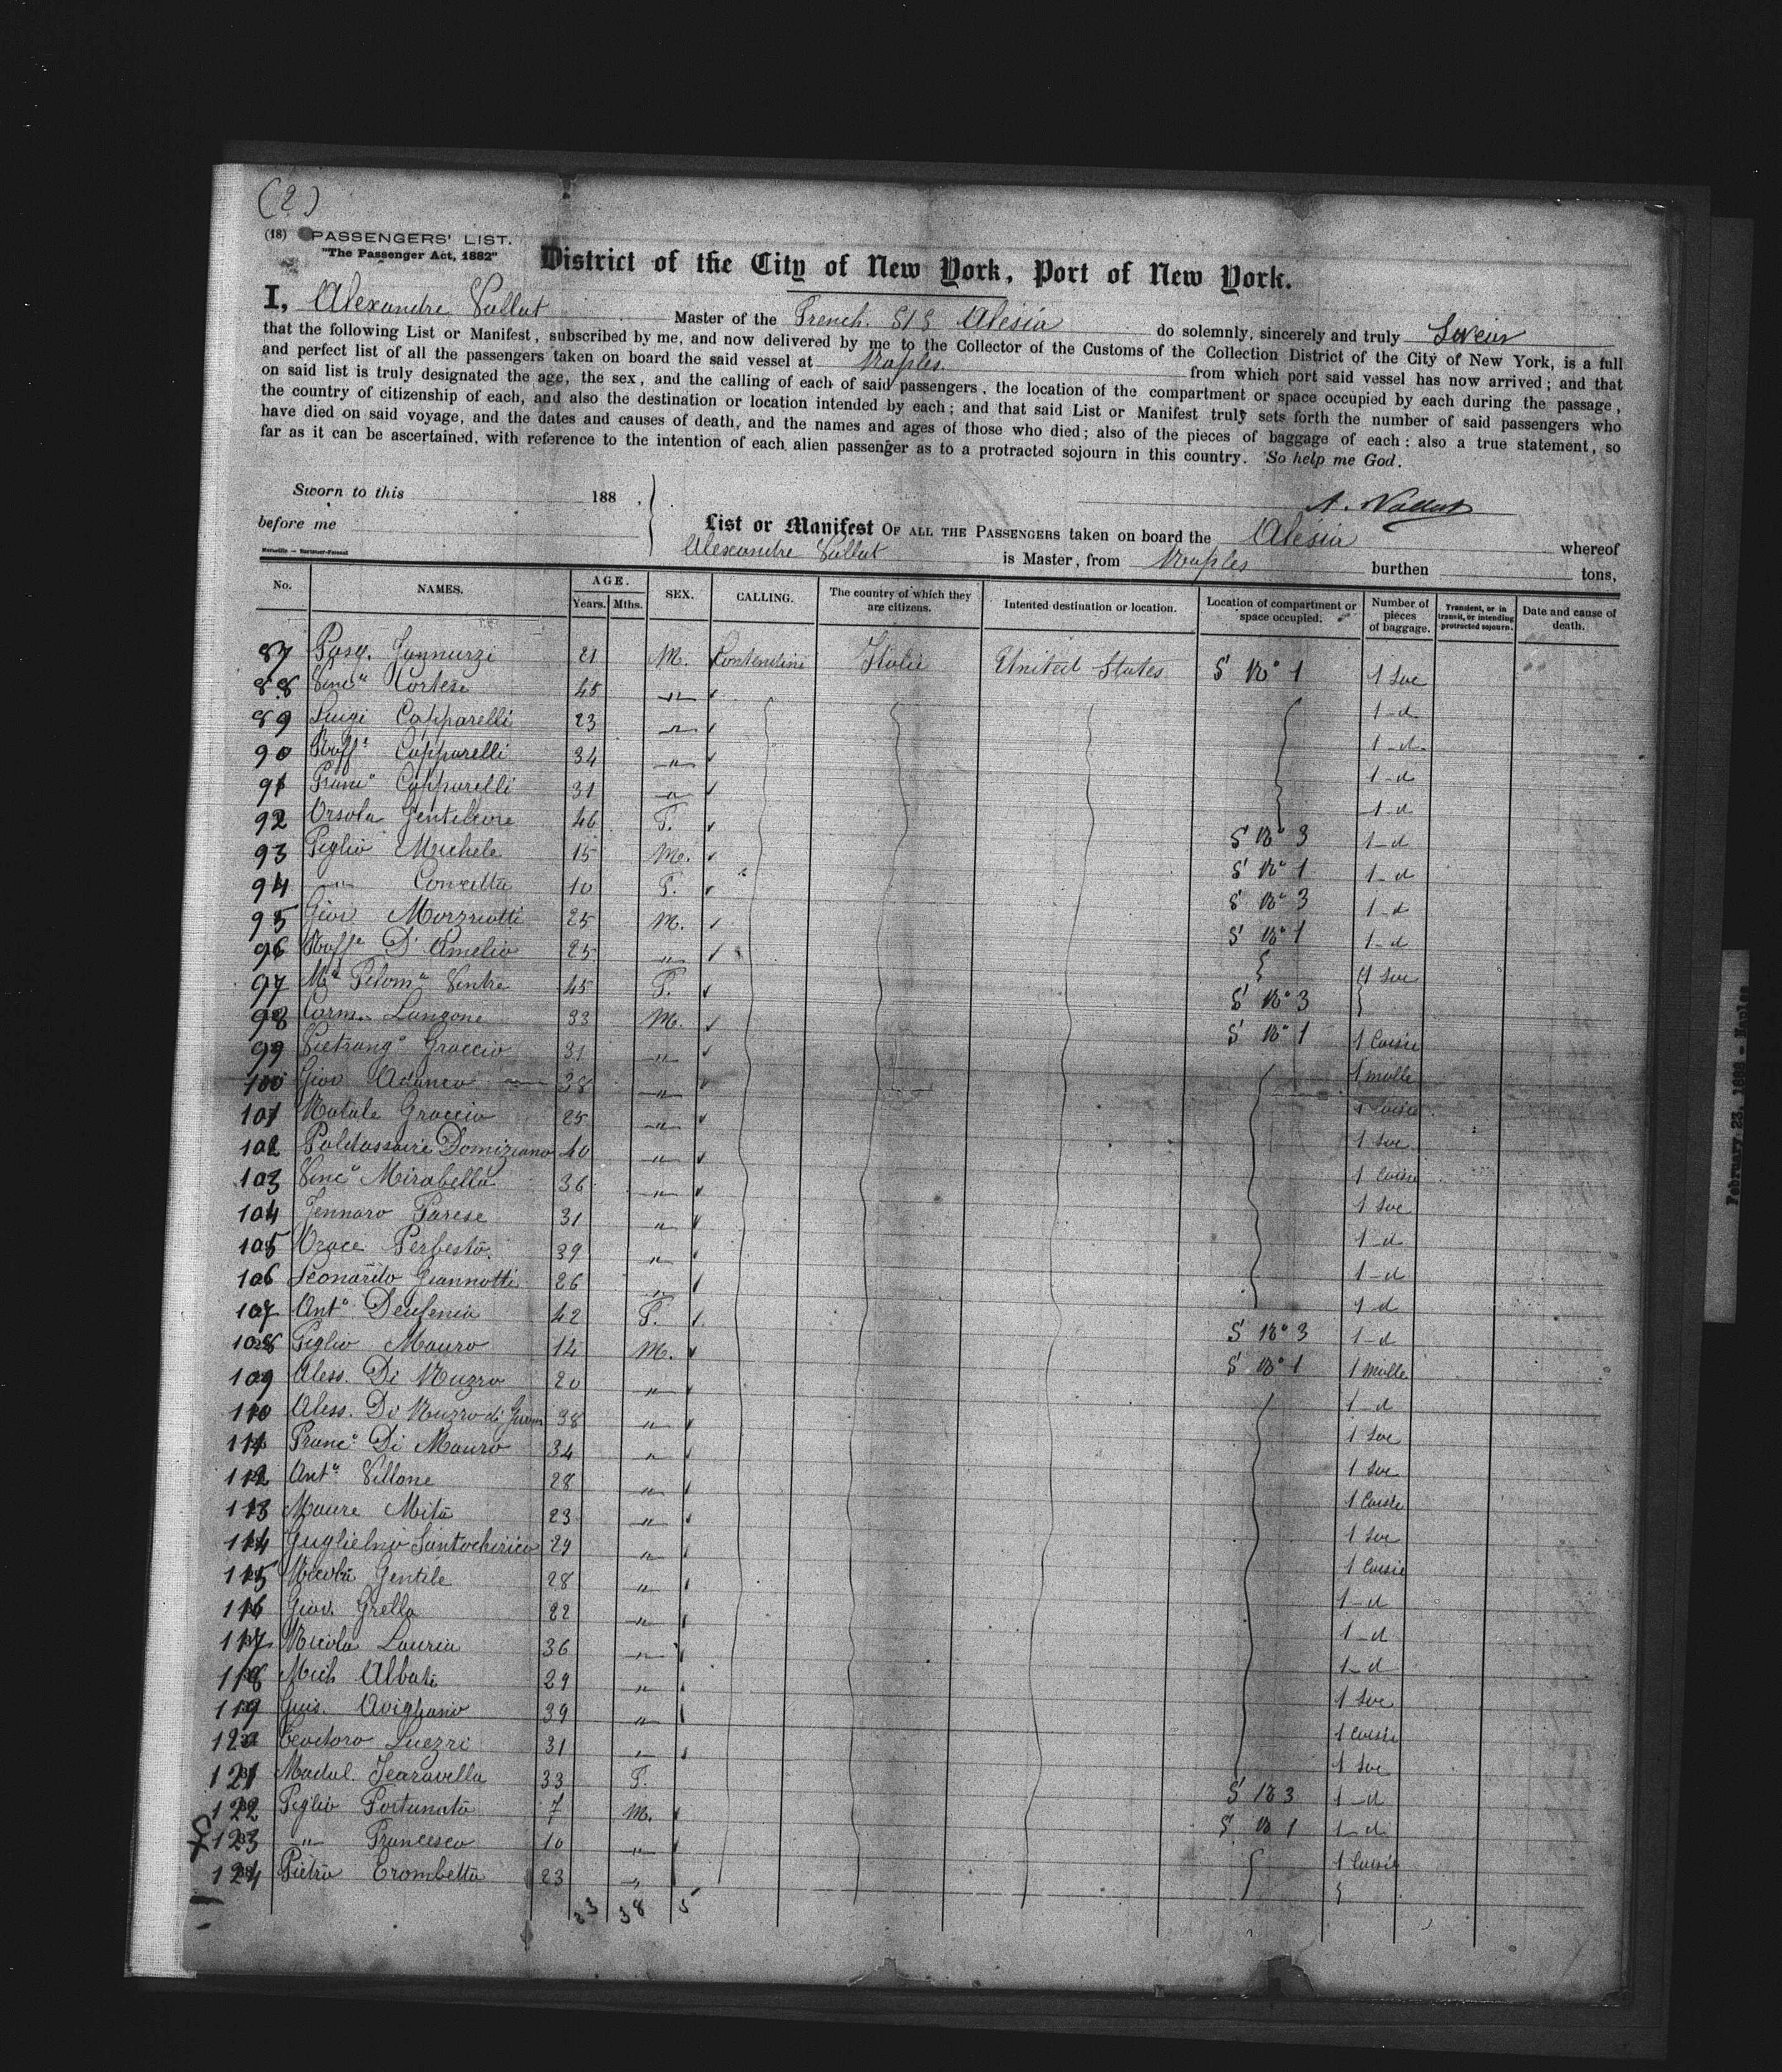 (2)
(18) PASSENGERS' LIST.
"The Passenger Act, 1882"
District of the City of New York, Port of New York.
I, Alexandre Vallat Master of the French. S/S Alesia do solemnly, sincerely and truly Swear
that the following List or Manifest, subscribed by me, and now delivered by me to the Collector of the Customs of the Collection District of the City of New York, is a full
and perfect list of all the passengers taken on board the said vessel at Naples. from which port said vessel has now arrived; and that
on said list is truly designated the age, the sex, and the calling of each of said passengers, the location of the compartment or space occupied by each during the passage,
the country of citizenship of each, and also the destination or location intended by each; and that said List or Manifest truly sets forth the number of said passengers who
have died on said voyage, and the dates and causes of death, and the names and ages of those who died; also of the pieces of baggage of each: also a true statement, so
far as it can be ascertained, with reference to the intention of each alien passenger as to a protracted sojourn in this country. So help me God.
Sworn to this 188 .
before me
A. Vallat
List or Manifest OF ALL THE PASSENGERS taken on board the Alésia whereof
Alexandre Vallat is Master, from Naples burthen tons,
No. NAMES. AGE. Years. Mths. SEX. CALLING. The country of which they are citizens. Intented destination or location. Location of compartment or space occupied. Number of pieces of baggage. Transient, or in transit, or intending protracted sojourn. Date and cause of death.
87 Pasq. Jannuzzi 21 M. Italie United States S No 1 1 Sac
88 Vinc° Cortese 45 " 1 d
89 Luigi Capparelli 23 " 1 d
90 Raff° Capparelli 34 " 1 d
91 Franc° Capparelli 31 " 1 d
92 Orsola Gentilcore 46 F. S No 3 1 d
93 Figlio Michele 15 M. S No 1 1 d
94 " Concetta 10 F. S No 3 1 d
95 Giov. Marzriotti 25 M. S No 1 1 d
96 Raff° D'Amelio 25 " 1 Sac
97 Ma Filom° Ventre 45 F. S No 3
98 Carm. Langone 33 M. S No 1 1 Caisse
99 Vietrang° Graccio 31 " 1 malle
100 Giov Adanco 38 " 1 Caisse
101 Natale Graccio 25 " 1 Sac
102 Baldassaire Domiziano 40 " 1 Caisse
103 Vinc° Mirabella 36 " 1 Sac
104 Jennaro Farese 31 " 1 d
105 Perfesto. 39 " 1 d
106 Leonardo Giannotti 26 " 1 d
107 Ant° Deufemia 42 F. S No 3 1 d
108 Figlio Mauro 14 M. S No 1 1 Malle
109 Aless. Di Nuzzo 20 " 1 d
110 Aless. Di Nuzzo di 38 " 1 Sac
111 Franc° Di Mauro 34 " 1 Sac
112 Ant° Villone 28 " 1 Caisse
113 Maure Mita 23 " 1 Sac
114 Guglielmo Santochirico 29 " 1 Caisse
115 Nicola Gentile 28 " 1 d
116 Giov. Grella 22 " 1 d
117 Nicola Lauria 36 " 1 d
118 Mich Abbate 29 " 1 Sac
119 Guis. Avigliano 39 " 1 Caisse
120 Teodoro Luezzi 31 " 1 Sac
121 Madal. Scaravella 33 F. S No 3 1 d
122 Figlio Fortunato 7 M. S No 1 1 d
123 " Francesco 10 " 1 Caisse
124 Pietro Trombetta 23 "
33 38 5
February 23, 1888 - Naples